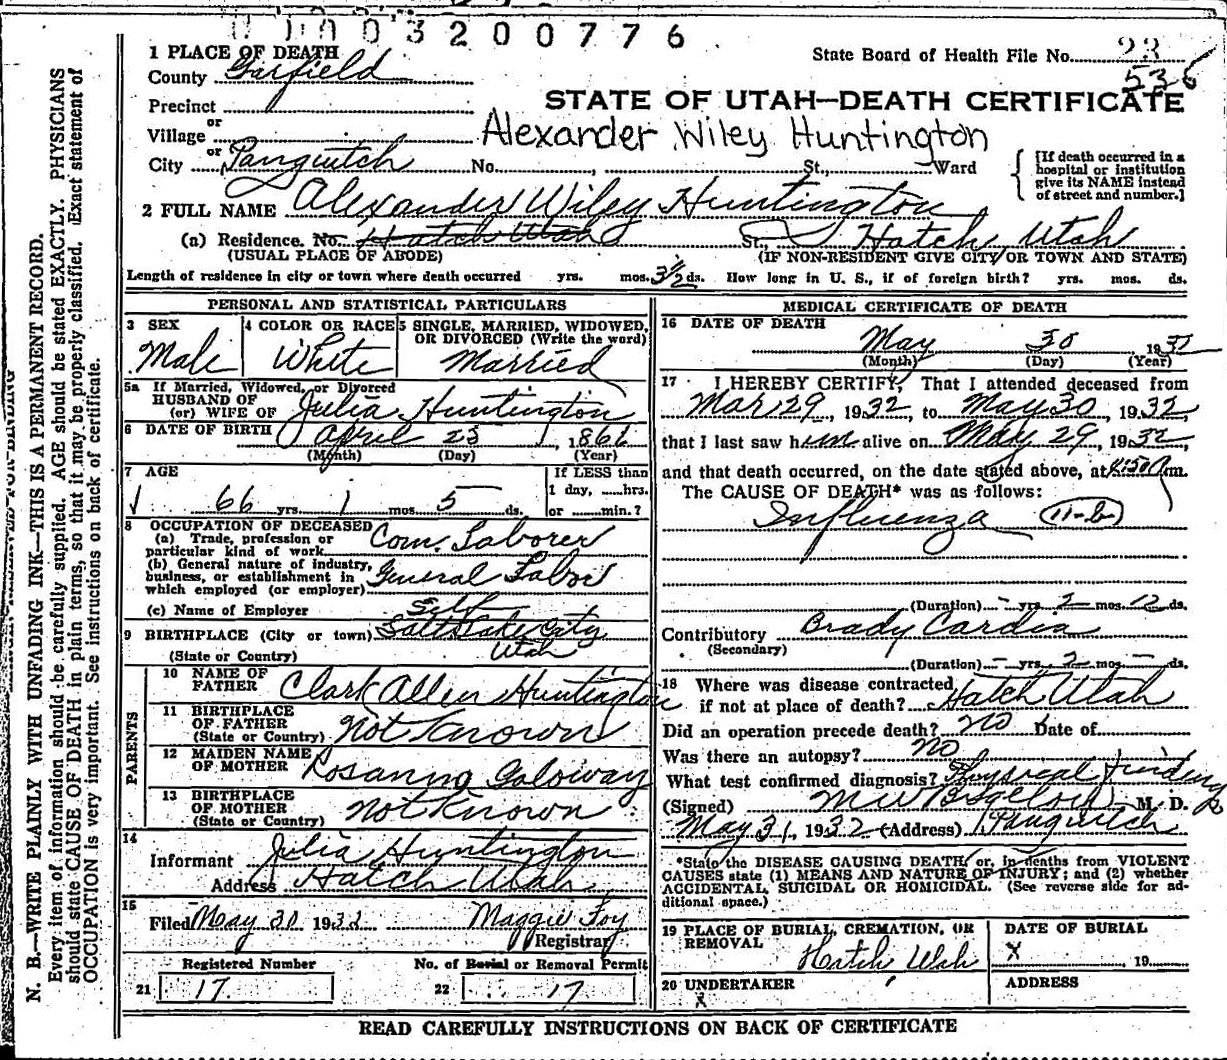 0 3 2 0 0 7 7 6
State Board of Health File No. 23
536
1 PLACE OF DEATH
County Garfield
Precinct
or
Village
or
City Panguitch No. , St., Ward
STATE OF UTAH—DEATH CERTIFICATE
Alexander Wiley Huntington
[If death occurred in a
hospital or institution
give its NAME instead
of street and number.]
2 FULL NAME Alexander Wiley Huntington
(a) Residence. No. Hatch Utah St., Hatch, Utah
(USUAL PLACE OF ABODE) (IF NON-RESIDENT GIVE CITY OR TOWN AND STATE)
Length of residence in city or town where death occurred yrs. mos. 3½ ds. How long in U. S., if of foreign birth? yrs. mos. ds.
PERSONAL AND STATISTICAL PARTICULARS
3 SEX
Male
4 COLOR OR RACE
White
5 SINGLE, MARRIED, WIDOWED,
OR DIVORCED (Write the word)
Married
5a If Married, Widowed, or Divorced
HUSBAND OF
(or) WIFE OF Julia Huntington
6 DATE OF BIRTH April 25, 1866
(Month) (Day) (Year)
7 AGE
66 yrs. 1 mos. 5 ds.
If LESS than
1 day, ......hrs.
or ......min.?
8 OCCUPATION OF DECEASED
(a) Trade, profession or
particular kind of work Com. Laborer
(b) General nature of industry,
business, or establishment in
which employed (or employer) General Labor
(c) Name of Employer Self
9 BIRTHPLACE (City or town) Salt Lake City
(State or Country) Utah
PARENTS
10 NAME OF
FATHER Clark Allen Huntington
11 BIRTHPLACE
OF FATHER
(State or Country) Not Known
12 MAIDEN NAME
OF MOTHER Rosanna Galoway
13 BIRTHPLACE
OF MOTHER
(State or Country) Not Known
14
Informant Julia Huntington
Address Hatch Utah
15
Filed May 30 1932 Maggie Foy
Registrar
Registered Number No. of Burial or Removal Permit
21 17 22 17
MEDICAL CERTIFICATE OF DEATH
16 DATE OF DEATH
May 30 1932
(Month) (Day) (Year)
17 I HEREBY CERTIFY, That I attended deceased from
Mar 29, 1932, to May 30, 1932,
that I last saw him alive on May 29, 1932
and that death occurred, on the date stated above, at m.
The CAUSE OF DEATH* was as follows:
Influenza (11-b)
(Duration) - yrs. 2 mos. 12 ds.
Contributory Brady Cardia
(Secondary)
(Duration) - yrs. 2 mos. - ds.
18 Where was disease contracted
if not at place of death? Hatch Utah
Did an operation precede death? no Date of
Was there an autopsy? no
What test confirmed diagnosis? Physical findings
(Signed) M. D.
May 31, 1932 (Address) Panguitch
*State the DISEASE CAUSING DEATH, or, in deaths from VIOLENT
CAUSES state (1) MEANS AND NATURE OF INJURY; and (2) whether
ACCIDENTAL, SUICIDAL OR HOMICIDAL. (See reverse side for ad-
ditional space.)
19 PLACE OF BURIAL, CREMATION, OR
REMOVAL
Hatch, Utah
DATE OF BURIAL
x , 19
20 UNDERTAKER
x
ADDRESS
READ CAREFULLY INSTRUCTIONS ON BACK OF CERTIFICATE
N. B.—WRITE PLAINLY WITH UNFADING INK—THIS IS A PERMANENT RECORD.
Every item of information should be carefully supplied. AGE should be stated EXACTLY. PHYSICIANS
should state CAUSE OF DEATH in plain terms, so that it may be properly classified. Exact statement of
OCCUPATION is very important. See instructions on back of certificate.